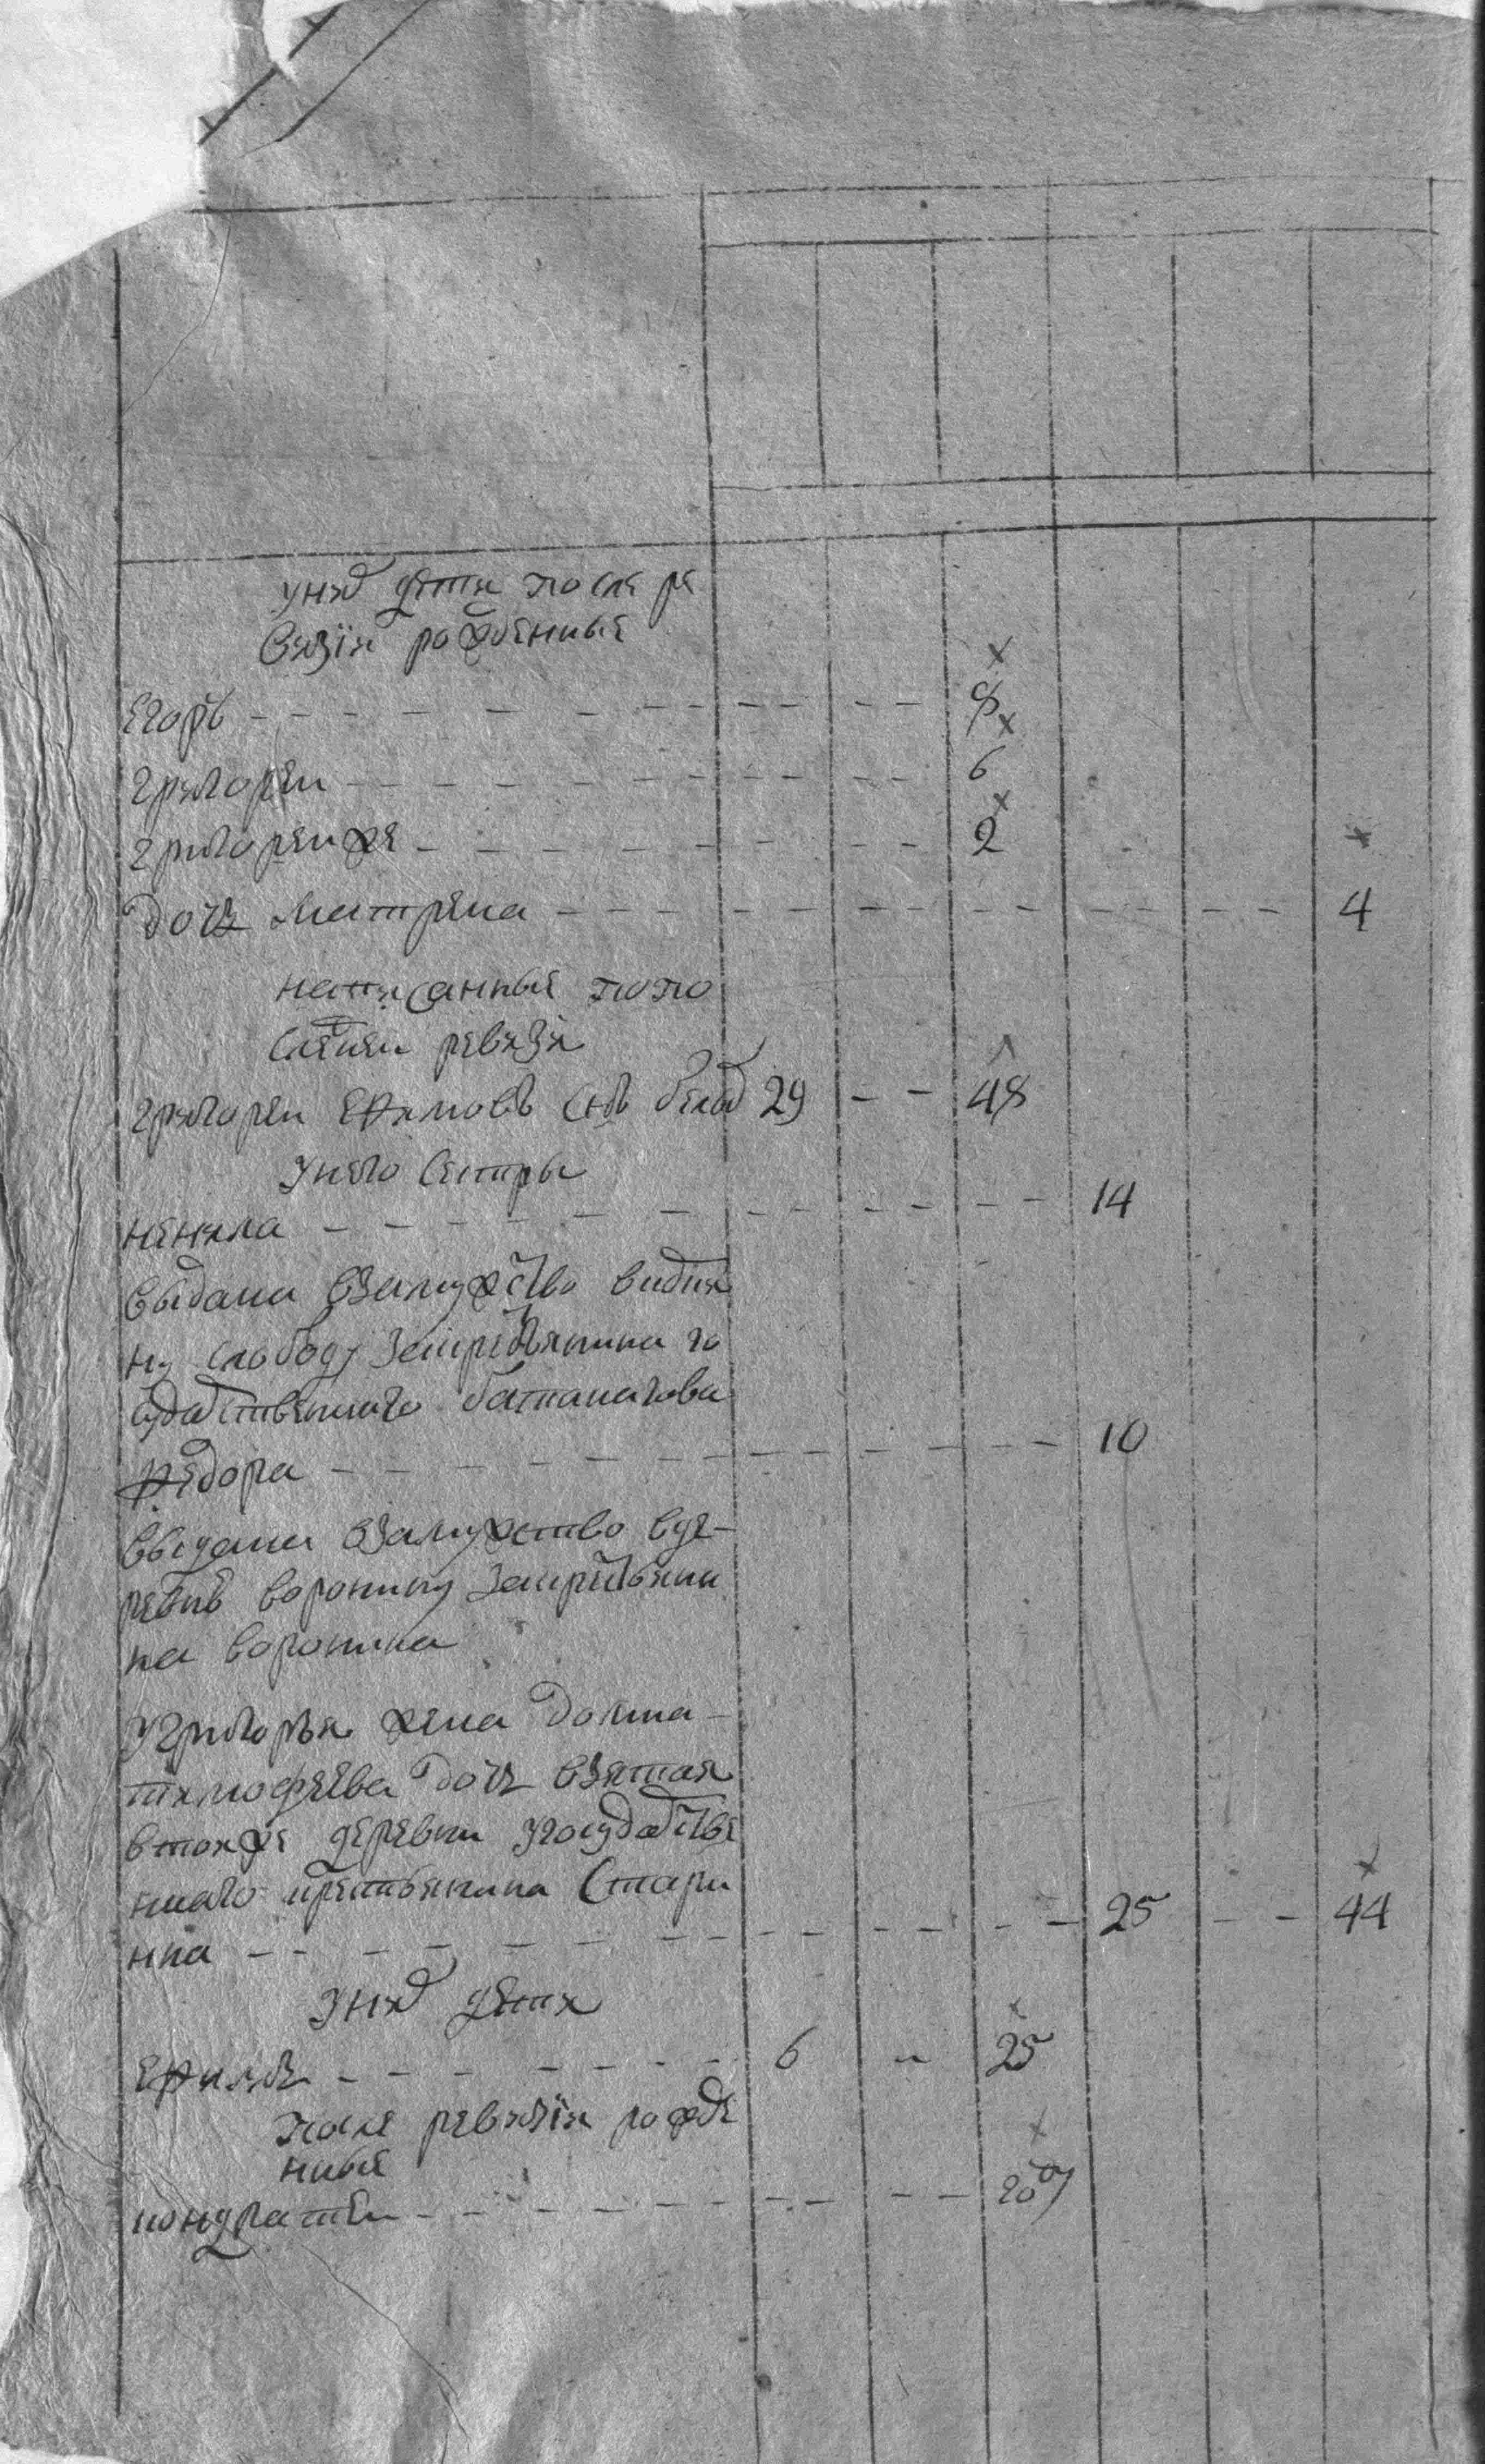 у них дети после ре
визiи рожденные
Егоръ - - - 8
Григорей - - - 6
Григорей же - - - 2
дочь Матрена - - - 4
написанные по по
следней ревизи
Григорей Ефимовъ снъ 29 - - 48
У него сестры
Ненила - - - 14
выдана взамужство
ну слободу за крестьянина го
сударственного
Федора - - - 10
выдана взамужство в де-
ревню Воронину за крестьяни
на Воронина
У Григорья жена Домна
Тимофеева дочь взятая
в той же деревни у государстве
ннаго крестьянина Стари
нна - - - 25 - - 44
У них дети
Ефимъ - - - 6 - 25
после ревизiи рожде
нные
Кондратей - - - 20